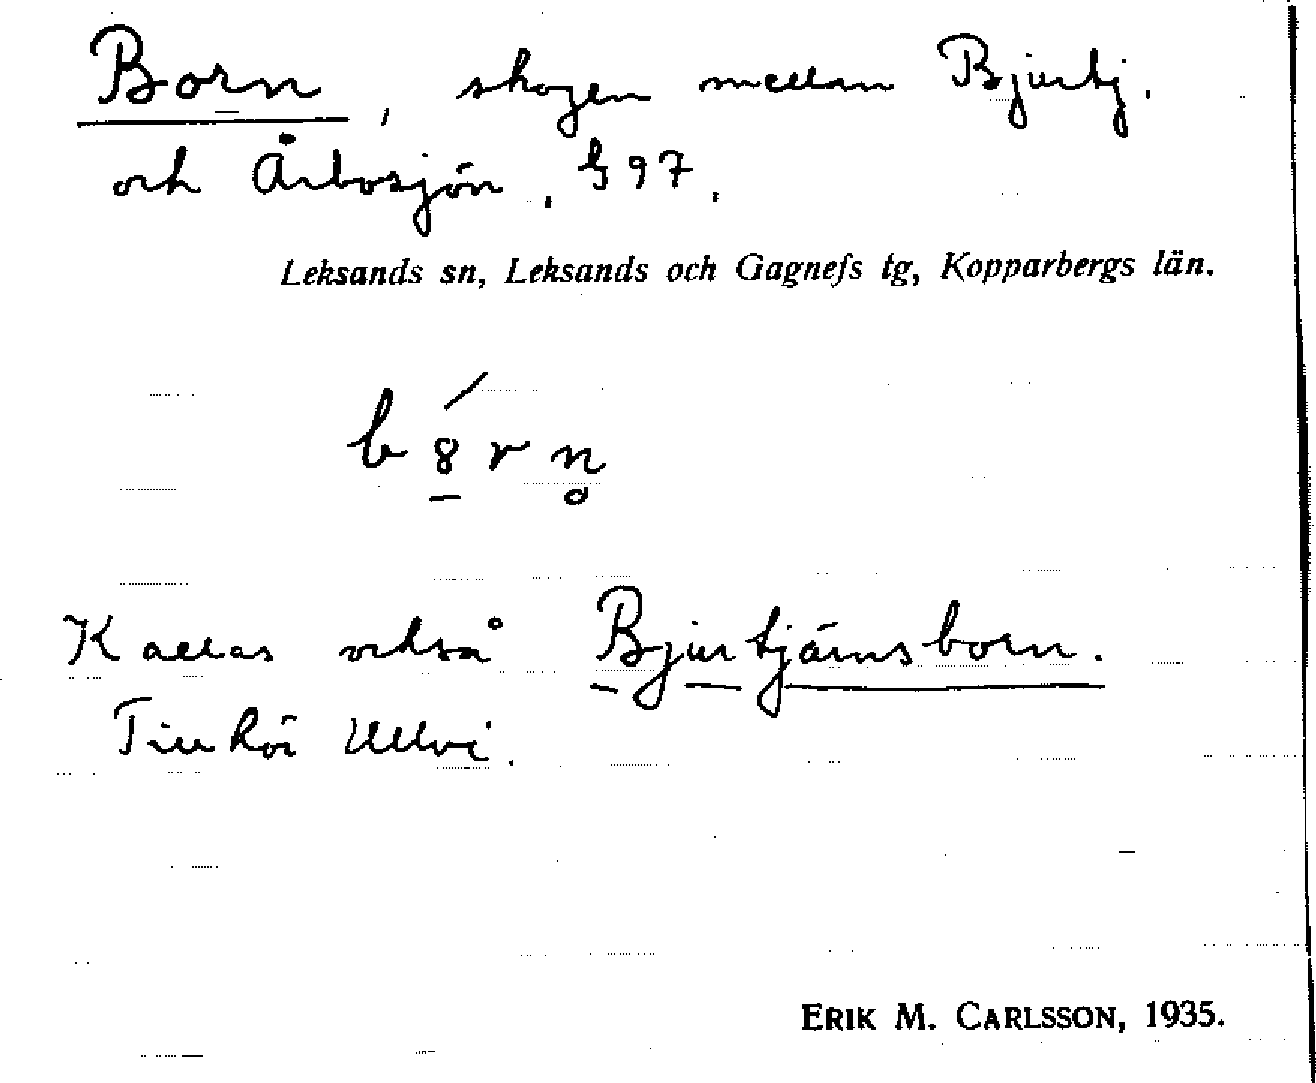 Born, skogen mellan Bjurtj.
och Årbosjön, § 97.
Leksands sn, Leksands och Gagnefs tg, Kopparbergs län.
b 8̱́ r n̥
Kallas också Bjurtjärnsborn.
Tillhör Ullvi.
ERIK M. CARLSSON, 1935.